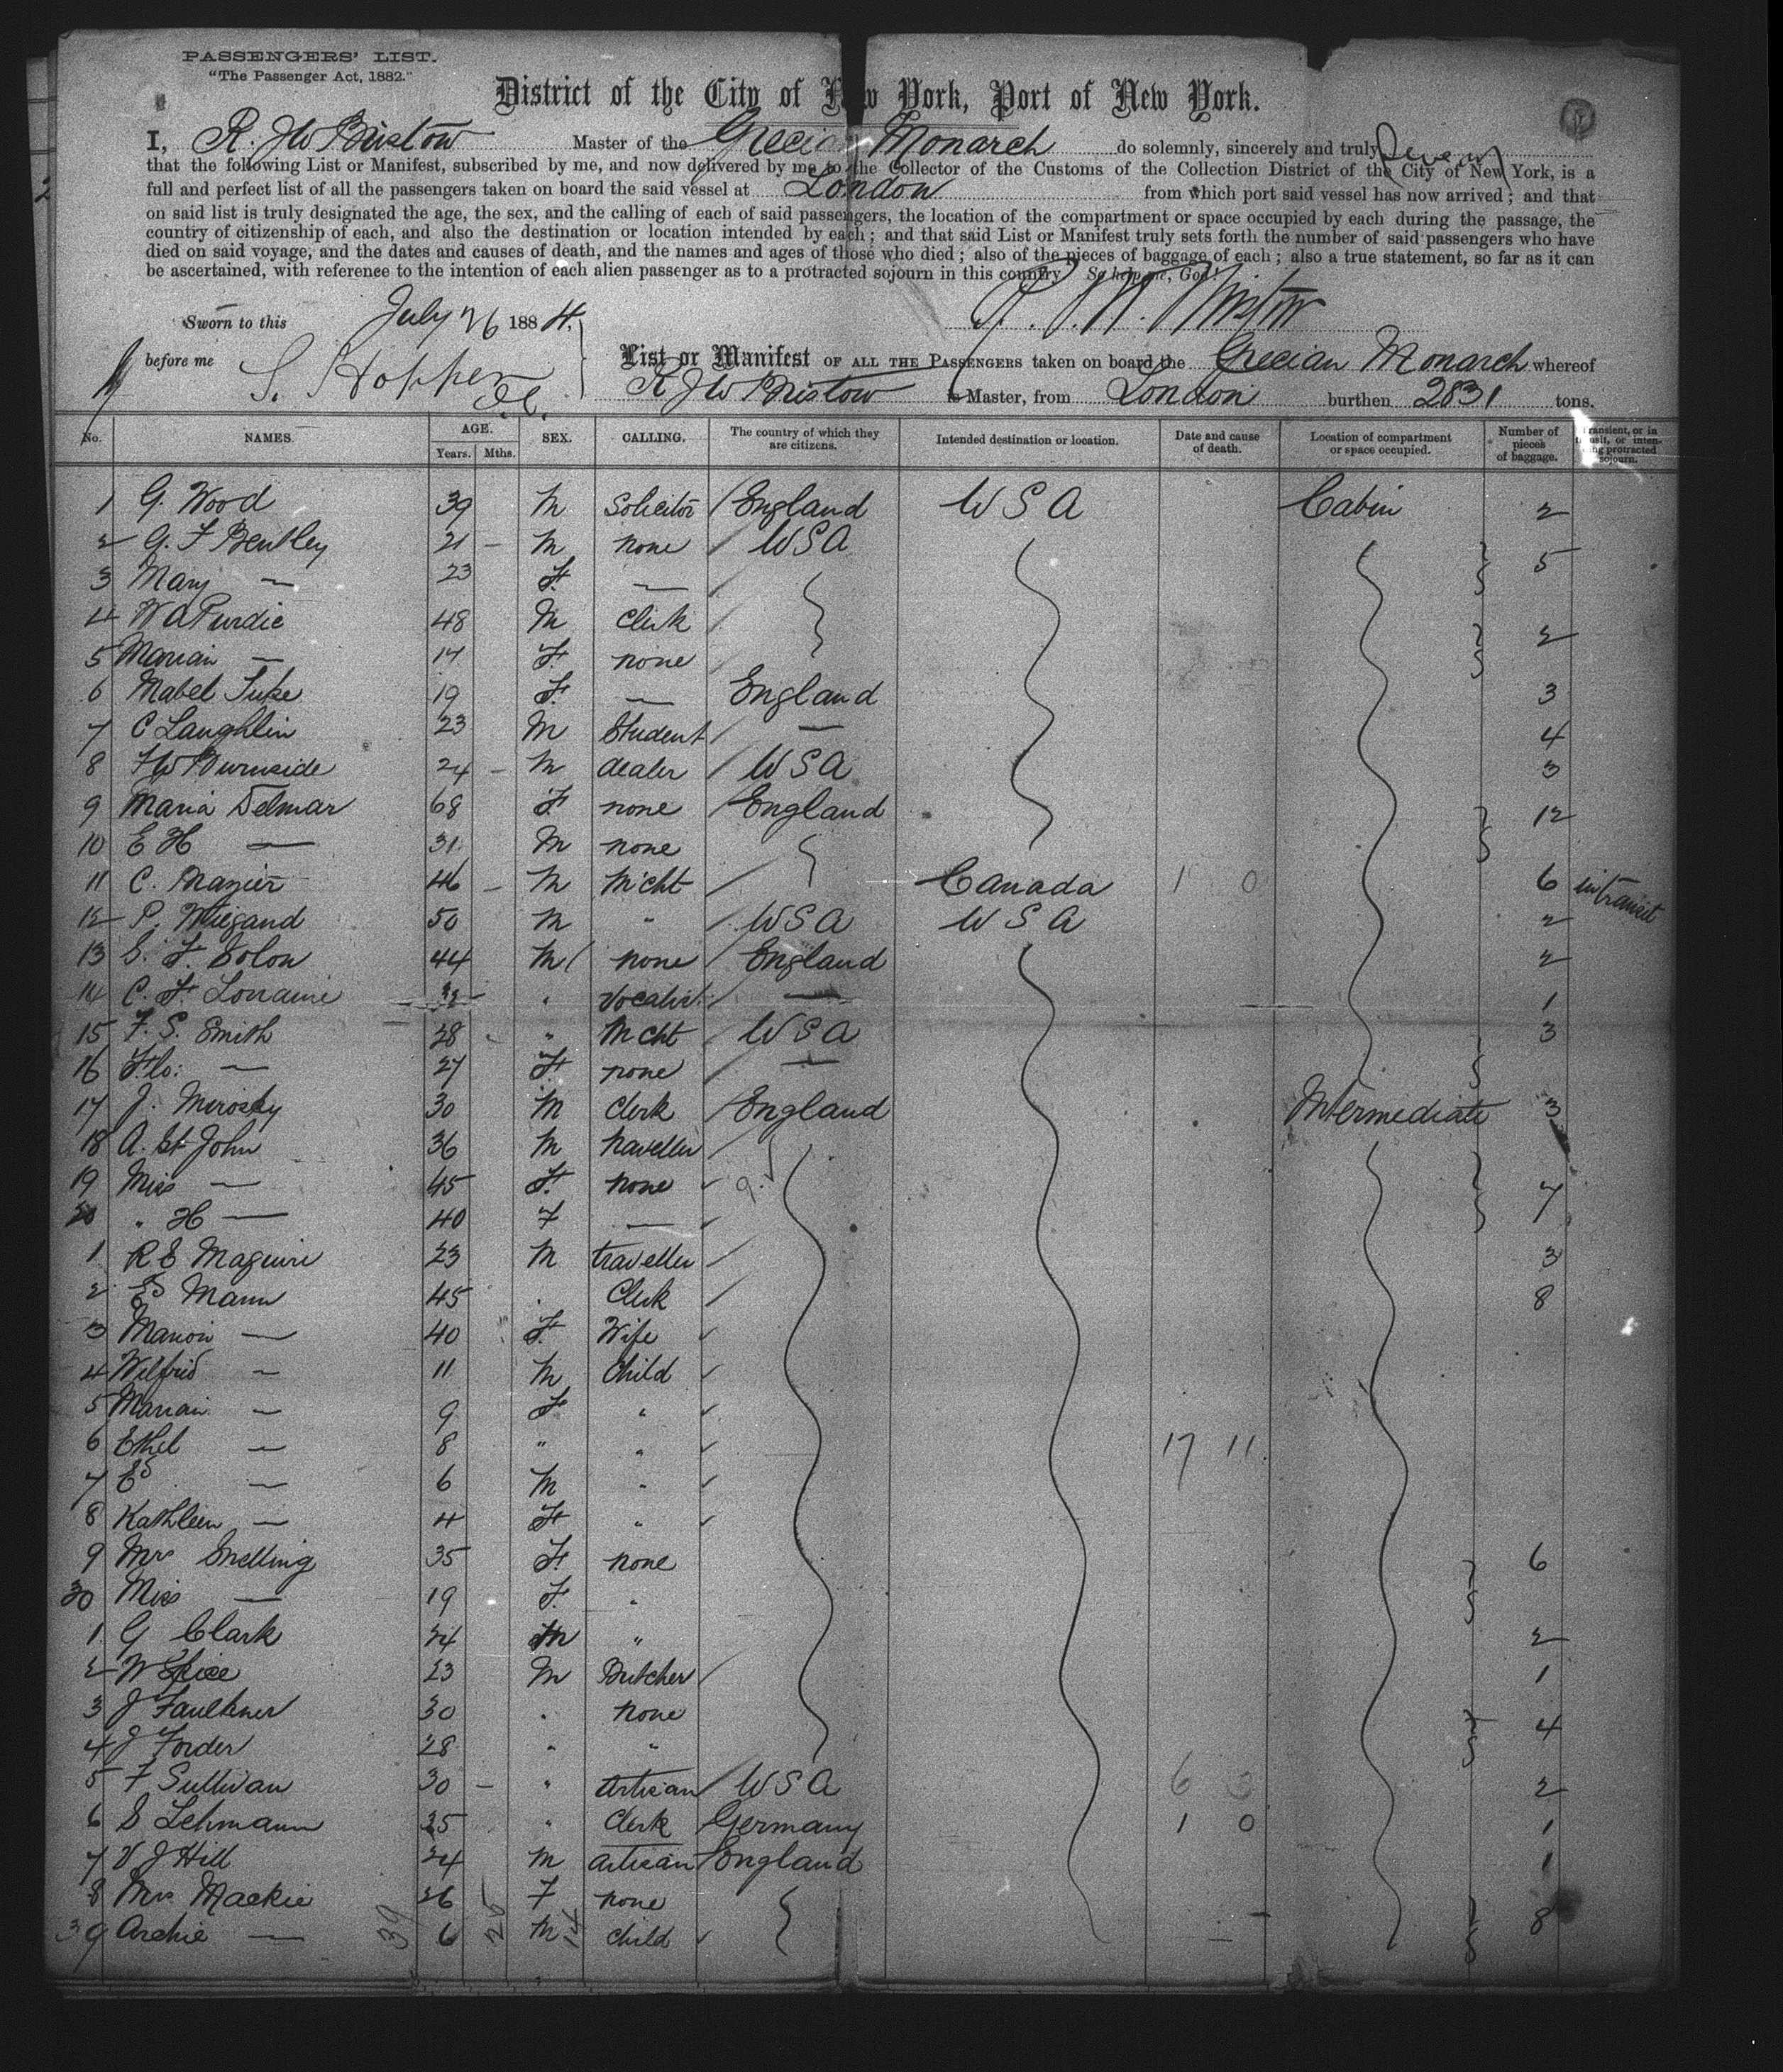 PASSENGERS' LIST.
"The Passenger Act, 1882."
District of the City of New York, Port of New York.
I, R. J W Bristow Master of the Grecian Monarch do solemnly, sincerely and truly Swear
that the following List or Manifest, subscribed by me, and now delivered by me to the Collector of the Customs of the Collection District of the City of New York, is a
full and perfect list of all the passengers taken on board the said vessel at London from which port said vessel has now arrived; and that
on said list is truly designated the age, the sex, and the calling of each of said passengers, the location of the compartment or space occupied by each during the passage, the
country of citizenship of each, and also the destination or location intended by each; and that said List or Manifest truly sets forth the number of said passengers who have
died on said voyage, and the dates and causes of death, and the names and ages of those who died; also of the pieces of baggage of each; also a true statement, so far as it can
be ascertained, with reference to the intention of each alien passenger as to a protracted sojourn in this country. So help me, God!
Sworn to this July 26 1884. R. J. W. Bristow
before me S. Hopper List or Manifest OF ALL THE PASSENGERS taken on board the Grecian Monarch whereof
R J W Bristow is Master, from London burthen 2831 tons.
No. NAMES. AGE. Years. Mths. SEX. CALLING. The country of which they are citizens. Intended destination or location. Date and cause of death. Location of compartment or space occupied. Number of pieces of baggage. Transient, or in transit, or intending protracted sojourn.
1 G. Wood 39 M Solicitor England USA Cabin 2
2 G. F Bentley 21 - M none USA 5
3 Mary — 23 F. —
4 W A Purdie 48 M Clerk 2
5 Marian — 17 F. none
6 Mabel Tuke 19 F. — England 3
7 C Laughlin 23 M Student — 4
8 F W Burnside 24 - M dealer USA 3
9 Maria Delmar 68 F none England 12
10 E H — 31 M none
11 C. Brazier 46 - M Mcht Canada 1 0 6 in transit
12 P. Wiegand 50 M " USA USA 2
13 S. F. Solon 44 M none England 2
14 C. F. Lorraine 32 - " vocalist — 1
15 F. S. Smith 28 " Mcht USA 3
16 Flo: — 27 F none —
17 J. Mirosky 30 M Clerk England Intermediate 3
18 A. St John 36 M traveller
19 Miss — 45 F. none 7
20 " H — 40 F —
1 R E Maguire 23 M traveller 3
2 Ed Mann 45 . Clerk 8
3 Marion — 40 F. Wife
4 Wilfrid — 11 M Child
5 Marian — 9 F "
6 Ethel — 8 " " 17 11
7 Ed — 6 M "
8 Kathleen — 4 F "
9 Mrs Snelling 35 F. none 6
30 Miss — 19 F. "
1 G Clark 24 M " 2
2 W Spice 23 M Butcher 1
3 J Faulkner 30 " none
4 J Forder 28 " " 4
5 F Sullivan 30 - " artisan USA 6 2
6 S Lehmann 25 " Clerk Germany 1 0 1
7 V J Hill 24 M artisan England 1
8 Mrs Mackie 26 F none
39 Archie — 6 M child 8
39 25 14